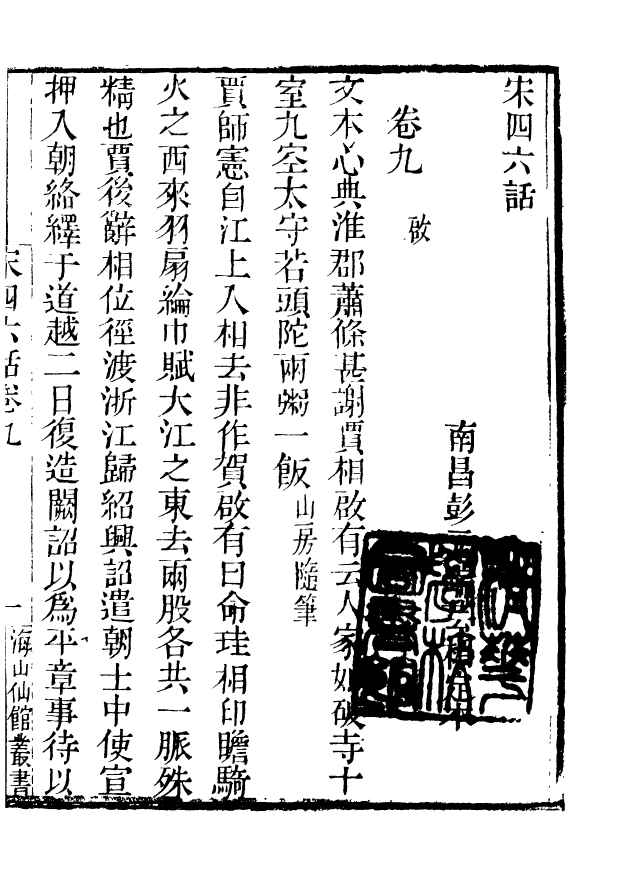 宋四六話
南昌彭
清華學校圖書館
卷九
啟
文本心典淮郡蕭條甚謝賈相啟有云人家如破寺十
室九空太守若頭陀兩粥一飯山房隨筆
賈師憲自江上入相去非作賀啟有曰命珪相印瞻騎
火之西來羽扇綸巾賦大江之東去兩股各共一脈殊
精也賈後辭相位徑渡浙江歸紹興詔遣朝士中使宣
押入朝絡繹于道越二日復造闕詔以為平章事待以
宋四六話卷九 一 海山仙館叢書